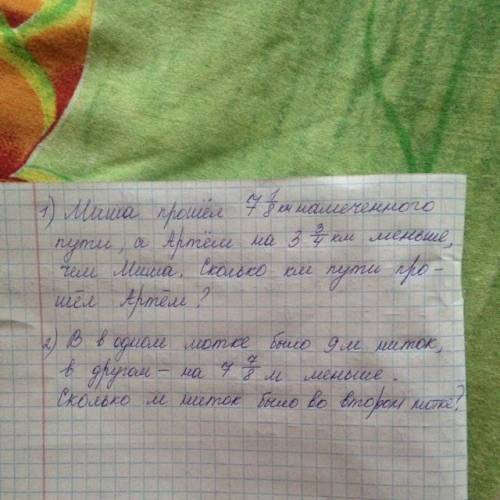 1) Миша прошёл 7 1/8 км намеченного
пути, а Артём на 3 3/4 км меньше,
чем Миша. Сколько км пути про-
шёл Артём?
2) В одном мотке было 9 м ниток,
в другом – на 7 7/8 м меньше.
Сколько м ниток было во втором мотке?